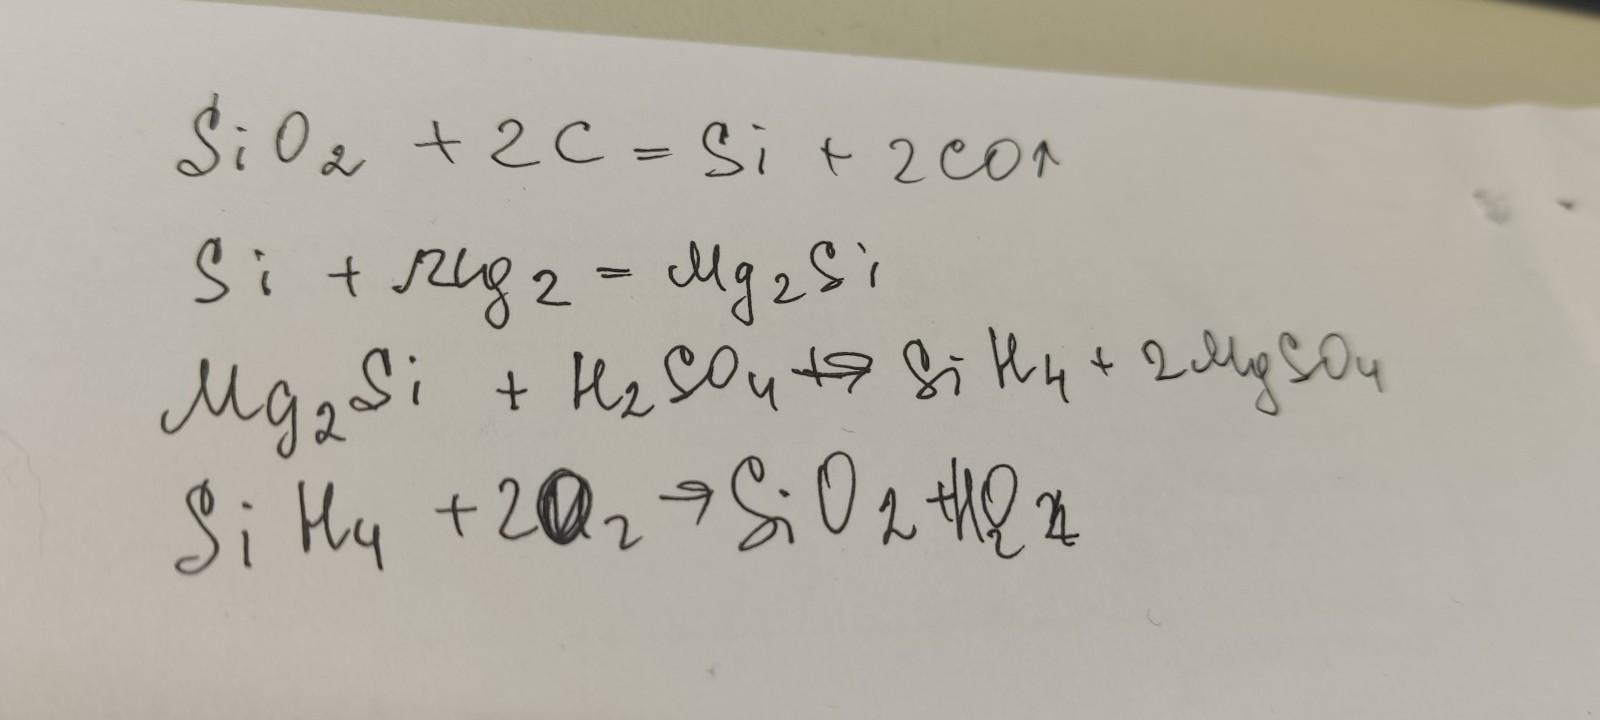 SiO₂ + 2C = Si + 2CO↑
Si + 2Mg₂ = Mg₂Si
Mg₂Si + H₂SO₄ → SiH₄ + 2MgSO₄
SiH₄ + 2O₂ → SiO₂ + H₂O